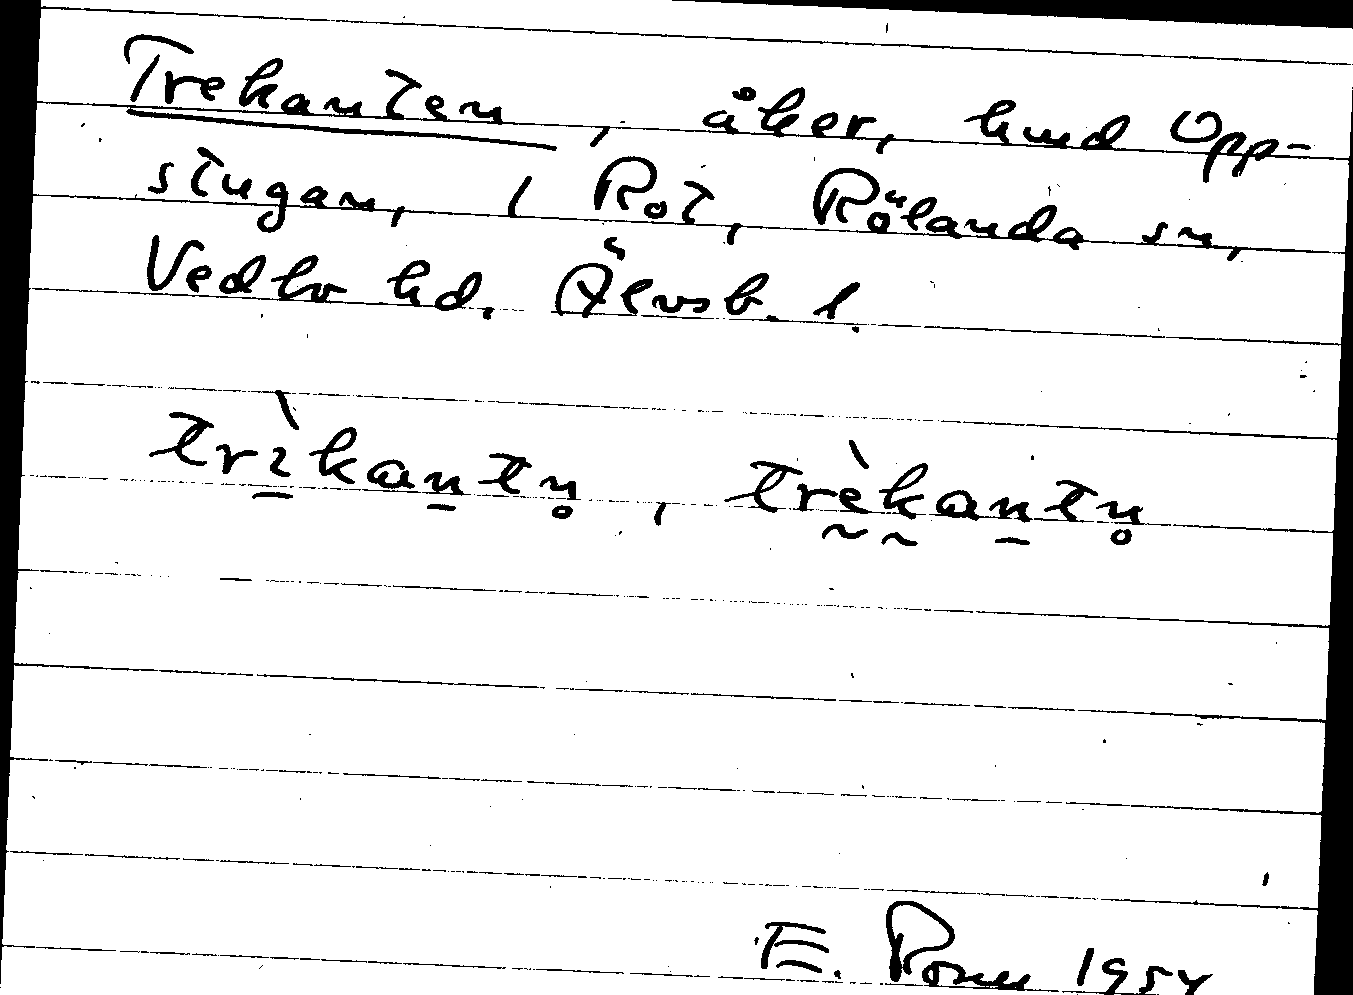 Trekanten, åker, hmd Opp-
stugan, 1 Rot, Rölanda sn,
Vedbo hd. Älvsb. l.
trìkantn̥, trèkantn̥
E. 1954